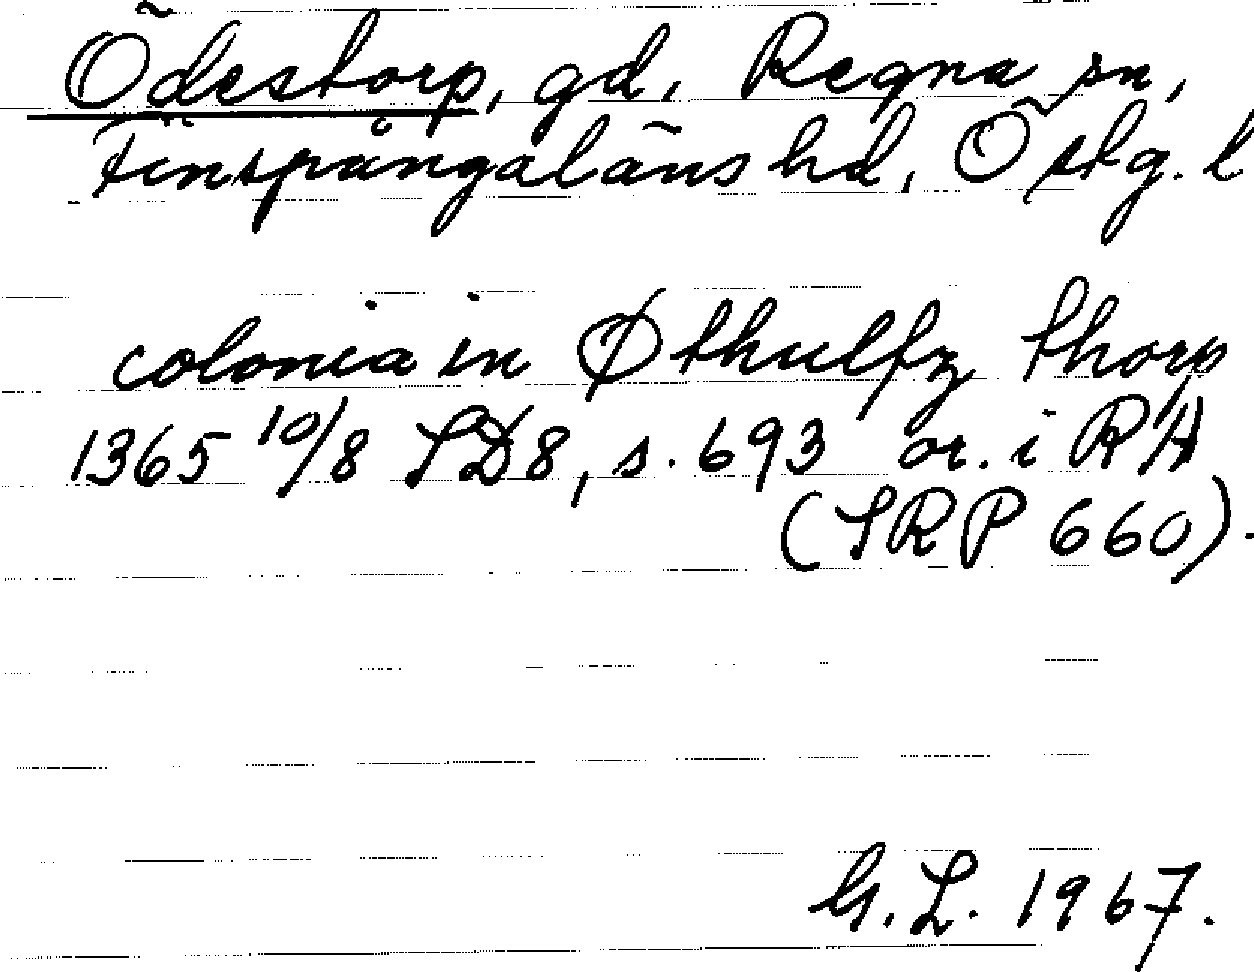 Ödestorp, gd, Regna sn,
Finspångaläns hd, Östg. l
colonia in Øthulfz thorp
1365 10/8 SD8, s. 693 or. i RA
(SRP 660).
G.L. 1967.